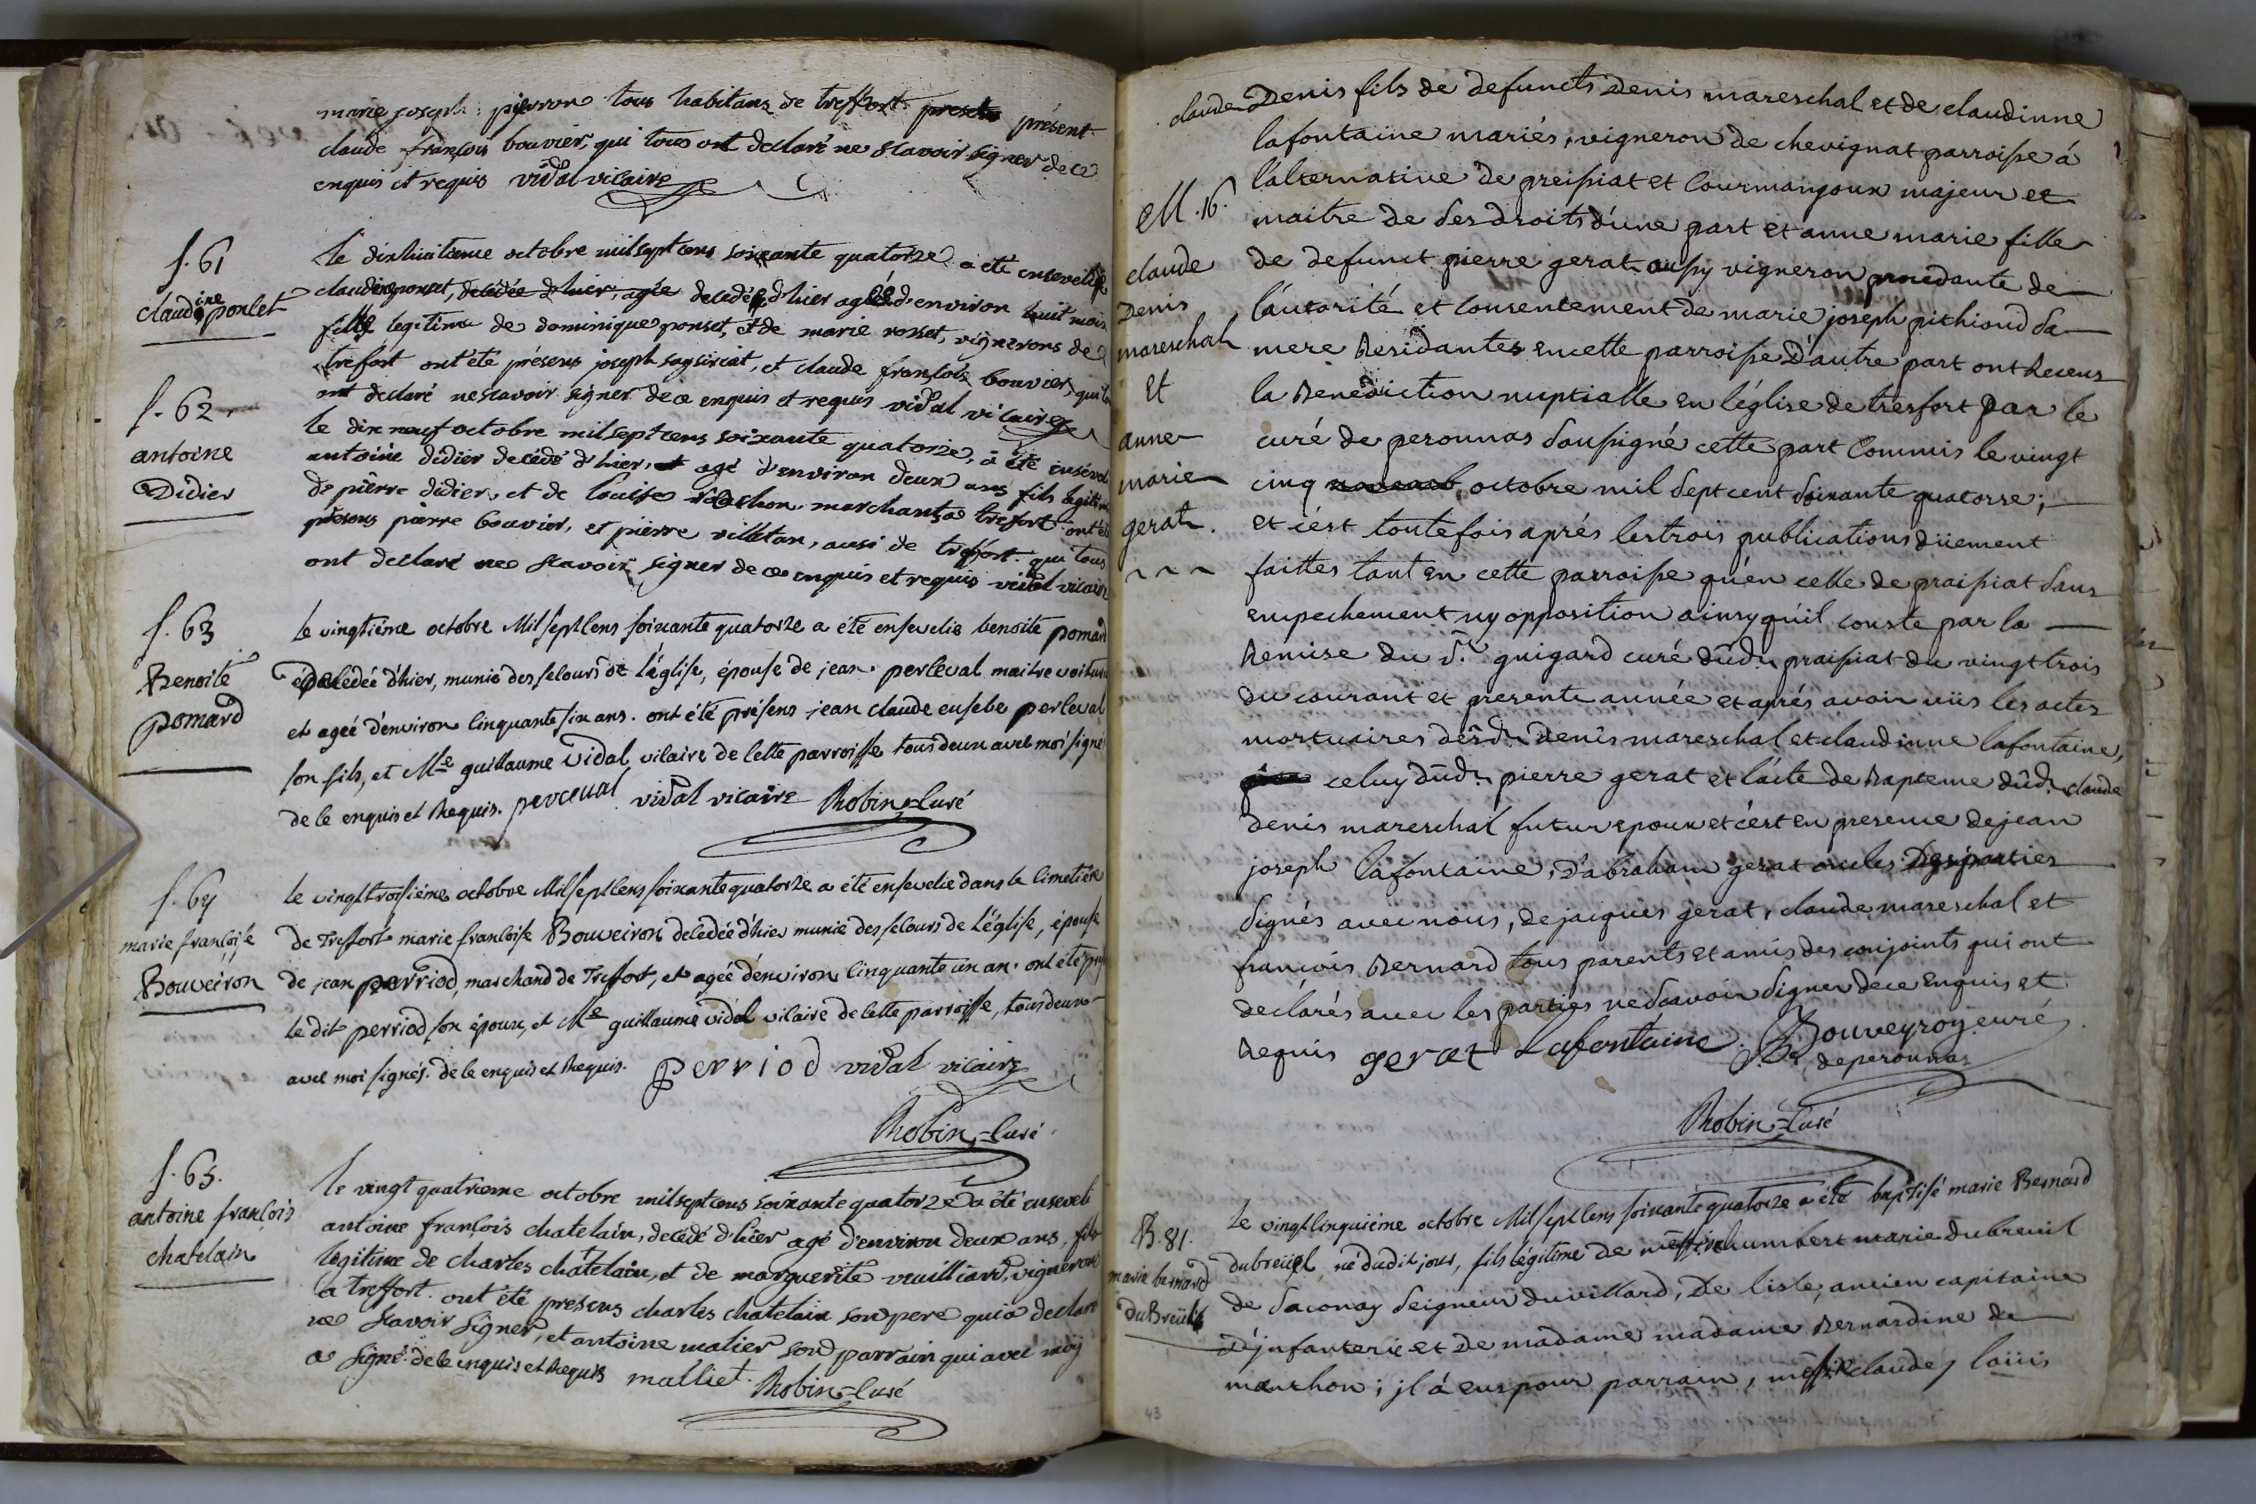 marie joseph pierron tous habitans de treffort présent
claude françois bouvier, qui tous ont declaré ne scavoir signer de ce
enquis et requis vidal vicaire
s. 61
claudine ponset
le dixhuitieme octobre mil sept cens soixante quatorze a été ensevelie
claudine ponset, decédée d'hier, agée decedée d'hier agée d'environ huit mois
fille legitime de dominique ponset, et de marie rosset, vignerons de
trefort ont été présens joseph et claude françois bouvier, qui
ont declaré ne scavoir signer de ce enquis et requis vidal vicaire
s. 62
antoine
Didier
le dix neuf octobre mil sept cens soixante quatorze, a été ensevel
antoine didier decédé d'hier, et agé d'environ deux ans fils legitim
de pierre didier, et de louise marchants a trefort ont été
présens pierre bouvier, et pierre villetan, ausi de treffort qui tous
ont declaré ne scavoir signer de ce enquis et requis vidal vicaire
s. 63
Benoite
pomard
le vingtiéme octobre Mil sept Cens soixante quatorze a été ensevelie benoite pomard
décédée d'hier, munie des secours de l'église, épouse de jean perceval maitre voitur
et agée d'environ cinquante six ans. ont été présens jean claude eusebe perceval
son fils, et Me guillaume vidal, vicaire de cette parroisse tous deux avec moi signé
de ce enquis et Requis. perceval vidal vicaire Robin = Curé
s. 64
marie françoise
Bouveiron
le vingt troisiéme octobre Mil sept Cens soixante quatorze a été ensevelie dans le cimetière
de Treffort marie françoise Bouveiron decedée d'hier munie des secours de l'église, épouse
de jean perriod, marchand de Treffort, et agée d'environ cinquante un an. ont été
le dit perriod son époux, et Me guillaume vidal vicaire de cette parroisse, tous deux
avec moi signés. de ce enquis et Requis. Perriod vidal vicaire
Robin = Curé
s. 65.
antoine françois
chatelain
le vingt quatrieme octobre mil sept cens soixante quatorze a été enseveli
antoine françois chatelain, decédé d'hier agé d'environ deux ans, fils
legitime de charles châtelain, et de marguerite vuilliard, vignerons
a treffort. ont été présens charles chatelain son pere qui a declaré
ne scavoir signer, et antoine malier son parrain qui avec moy
a signé. de ce enquis et Requis malliet. Robin = Curé
claude Denis fils de defuncts Denis mareschal et de claudinne
lafontaine mariés, vigneron de chevignat parroisse á
l'alternative de preissiat et Courmangoux majeur et
maitre de ses droits d'une part et anne marie fille
de defunct pierre gerat aussy vigneron procedante de
l'autorité et Consentement de marie joseph pithioud sa
mere Residantes en cette parroisse D'autre part ont Receus
la Benediction nuptialle en l'église de tresfort par le
curé de peronnas soussigné cette part Commis le vingt
cinq octobre mil sept cent soixante quatorse;
et c'est toutefois aprés les trois publications düement
faittes tant en cette parroisse qu'en celle de praissiat sans
empechement ny opposition ainsy qu'il conste par la
Remise du Sr. guigard curé dûdt. praissiat du vingt trois
du courant et presente année et aprés avoir viis les actes
mortuaires desdt. Denis mareschal et claudinne lafontaine,
celuy dûdt. pierre gerat et l'acte de Bapteme dûdt. claude
denis mareschal futur epoux et c'est en presence de jean
joseph lafontaine, D'abraham gerat oncles Des parties
signés avec nous, de jacques gerat, claude mareschal et
françois Bernard tous parents et amis des conjoints qui ont
declarés avec les parties ne scavoir signer de ce Enquis et
Requis gerat Lafontaine. Bouveyron curé
de peronnas
Robin = Curé
M. 16.
claude
Denis
mareschal
et
anne
marie
gerat.
B. 81.
marie bernard
duBreüil
le vingt Cinquiéme octobre Mil sept Cens soixante quatorze a été baptisé marie Bernard
dubreüil, né dudit jour, fils légitime de messire humbert marie dubreuil
de Saconay Seigneur du villard, De lisle, ancien capitaine
d'jnfanterie et De madame madame Bernardine de
manthon; jl á eus pour parrain, messire claude loüis
43